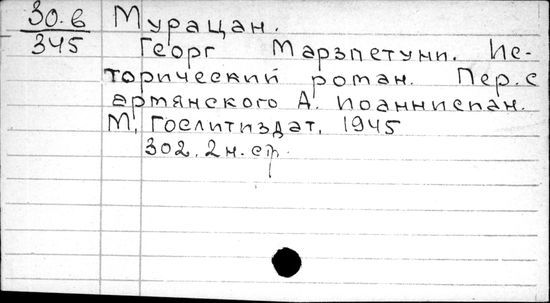 30.в Мурацан.
345 Георг Марзпетуни. Ис-
торический роман. Пер. с
армянского А. Иоаннисиан.
М, Гослитиздат, 1945
302. 2 н. ср.